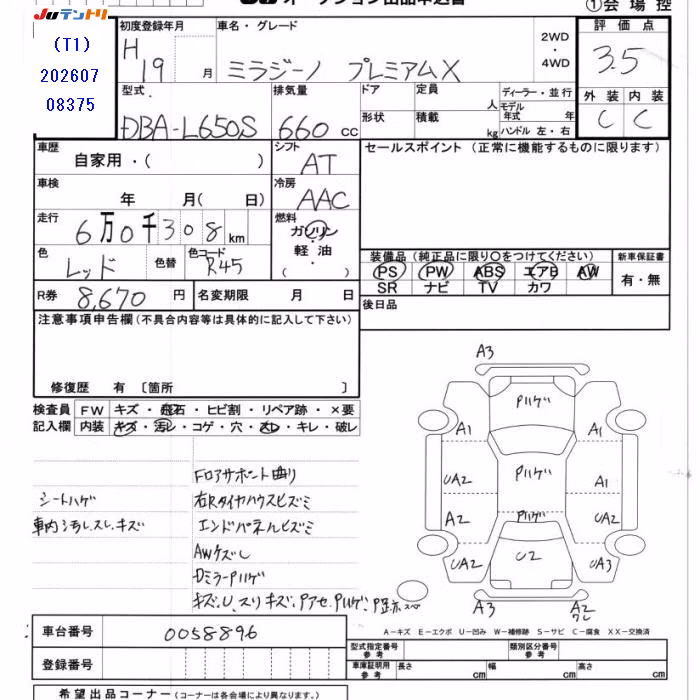 JUテントリ
オークション出品申込書
①会場控
(T1)
202607
08375
初度登録年月
H 19 月
車名・グレード
ミラジーノ プレミアムX
2WD
・
4WD
評価点
3.5
型式
DBA-L650S
排気量
660 cc
ドア
形状
定員 人
積載 kg
ディーラー・並行
モデル年式 年
ハンドル 左・右
外装 内装
C C
車歴
自家用・( )
シフト
AT
セールスポイント (正常に機能するものに限ります)
車検
年 月( 日)
冷房
AAC
走行
6万0千308km
燃料
ガソリン
軽油
・( )
色
レッド
色替
色コード
R45
装備品 (純正品に限り〇をつけてください)
新車保証書
PS PW ABS エアB AW
SR ナビ TV カワ
有・無
R券 8,670 円
名変期限 月 日
後日品
注意事項申告欄 (不具合内容等は具体的に記入して下さい)
修復歴 有 〔箇所 〕
検査員
記入欄
FW キズ・飛石・ヒビ割・リペア跡・×要
内装 キズ・汚レ・コゲ・穴・スレ・キレ・破レ
フロアサポート曲り
シートハゲ
右Rタイヤハウスヒズミ
車内汚れ,スレ,キズ
エンドパネルヒズミ
AWケズレ
DミラーPハゲ
キズ、U、スリキズ、Pアセ、Pハゲ、P跡
A3
Pハゲ
A1 A1
Pハゲ
UA2 A1
Pハゲ
A2 UA2
U2
UA2 UA3
A3 A2
ワレ
車台番号 0058896
A-キズ E-エクボ U-凹み W-補修跡 S-サビ C-腐食 XX-交換済
登録番号
型式指定番号
参考
類別区分番号
参考
車庫証明用
参考
長さ cm 幅 cm 高さ cm
希望出品コーナー (コーナーは各会場により異なります。)